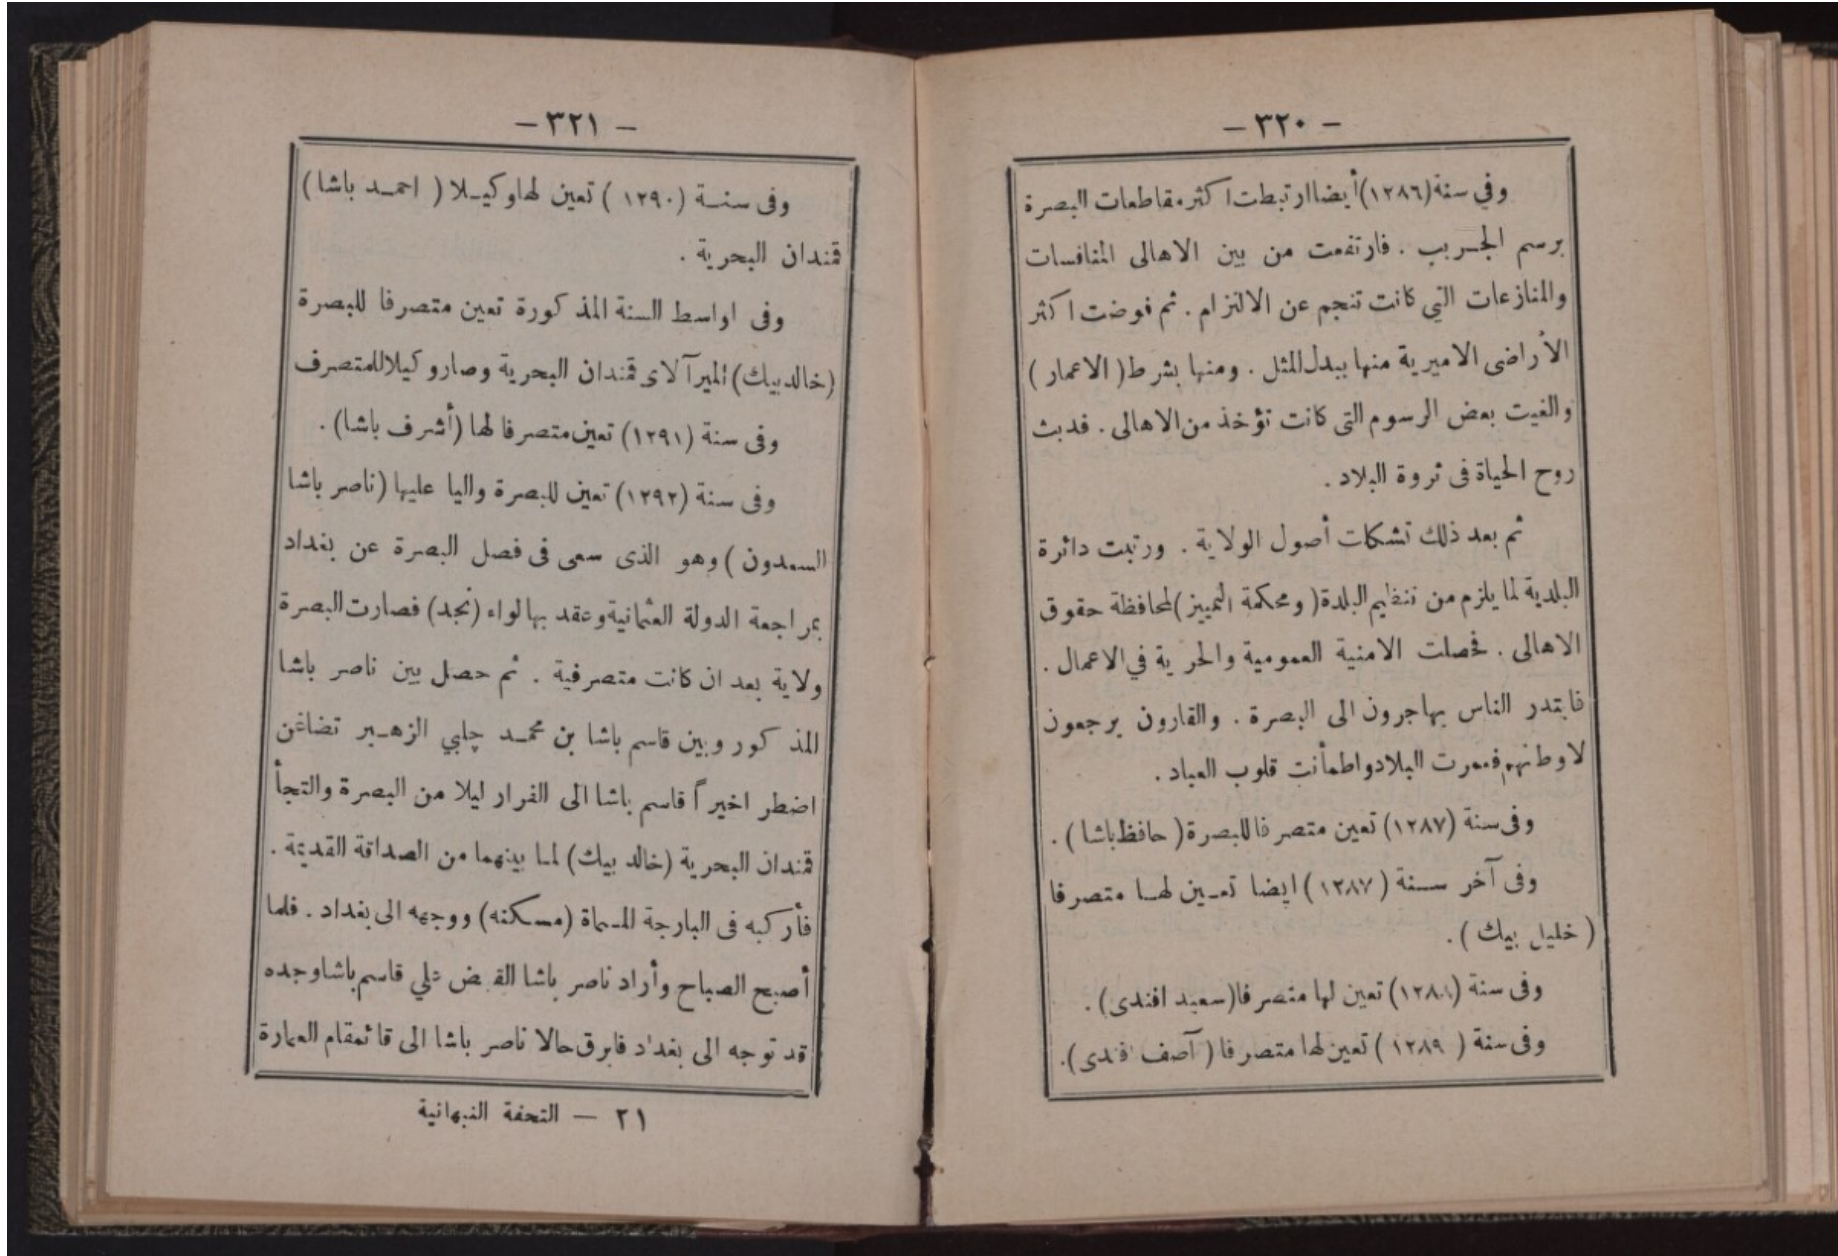 — ٣٢٠ —
وفي سنة (١٢٨٦) أيضا ارتبطت اكثر مقاطعات البصرة
برسم الجريب . فارتفعت من بين الاهالى المنافسات
والمنازعات التي كانت تنجم عن الالتزام . ثم فوضت اكثر
الأراضى الاميرية منها ببدل المثل . ومنها بشرط ( الاعمار )
والغيت بعض الرسوم التى كانت تؤخذ من الاهالى . فدبت
روح الحياة فى ثروة البلاد .
ثم بعد ذلك تشكلت أصول الولاية . ورتبت دائرة
البلدية لما يلزم من تنظيم البلدة ( ومحكمة التمييز ) لمحافظة حقوق
الاهالى . فحصلت الامنية العمومية والحرية في الاعمال .
فابتدر الناس يهاجرون الى البصرة . والقارون يرجعون
لاوطانهم فعمرت البلاد واطمأنت قلوب العباد .
وفى سنة (١٢٨٧) تعين متصرفا للبصرة ( حافظ باشا ) .
وفى آخر سنة ( ١٢٨٧ ) ايضا تعين لها متصرفا
( خليل بيك ) .
وفى سنة (١٢٨٨) تعين لها متصرفا (سعيد افندى) .
وفى سنة ( ١٢٨٩ ) تعين لها متصرفا ( آصف افندى).
— ٣٢١ —
وفى سنة (١٢٩٠ ) تعين لها وكيلا ( احمد باشا )
قمندان البحرية .
وفى اواسط السنة المذكورة تعين متصرفا للبصرة
(خالد بيك) الميرآلاى قمندان البحرية وصار وكيلا للمتصرف
وفى سنة (١٢٩١) تعين متصرفا لها (أشرف باشا) .
وفى سنة (١٢٩٢) تعين للبصرة واليا عليها (ناصر باشا
السعدون ) وهو الذى سعى فى فصل البصرة عن بغداد
بمراجعة الدولة العثمانية وعقد بها لواء (نجد) فصارت البصرة
ولاية بعد ان كانت متصرفية . ثم حصل بين ناصر باشا
المذكور وبين قاسم باشا بن محمد چلبي الزهير تضاغن
اضطر اخيراً قاسم باشا الى الفرار ليلا من البصرة والتجأ
قمندان البحرية (خالد بيك) لما بينهما من الصداقة القديمة .
فأركبه فى البارجة المسماة (مسكنه) ووجهه الى بغداد . فلما
أصبح الصباح وأراد ناصر باشا القبض علي قاسم باشا وجده
قد توجه الى بغداد فابرق حالا ناصر باشا الى قائمقام العمارة
٢١ — التحفة النبهانية